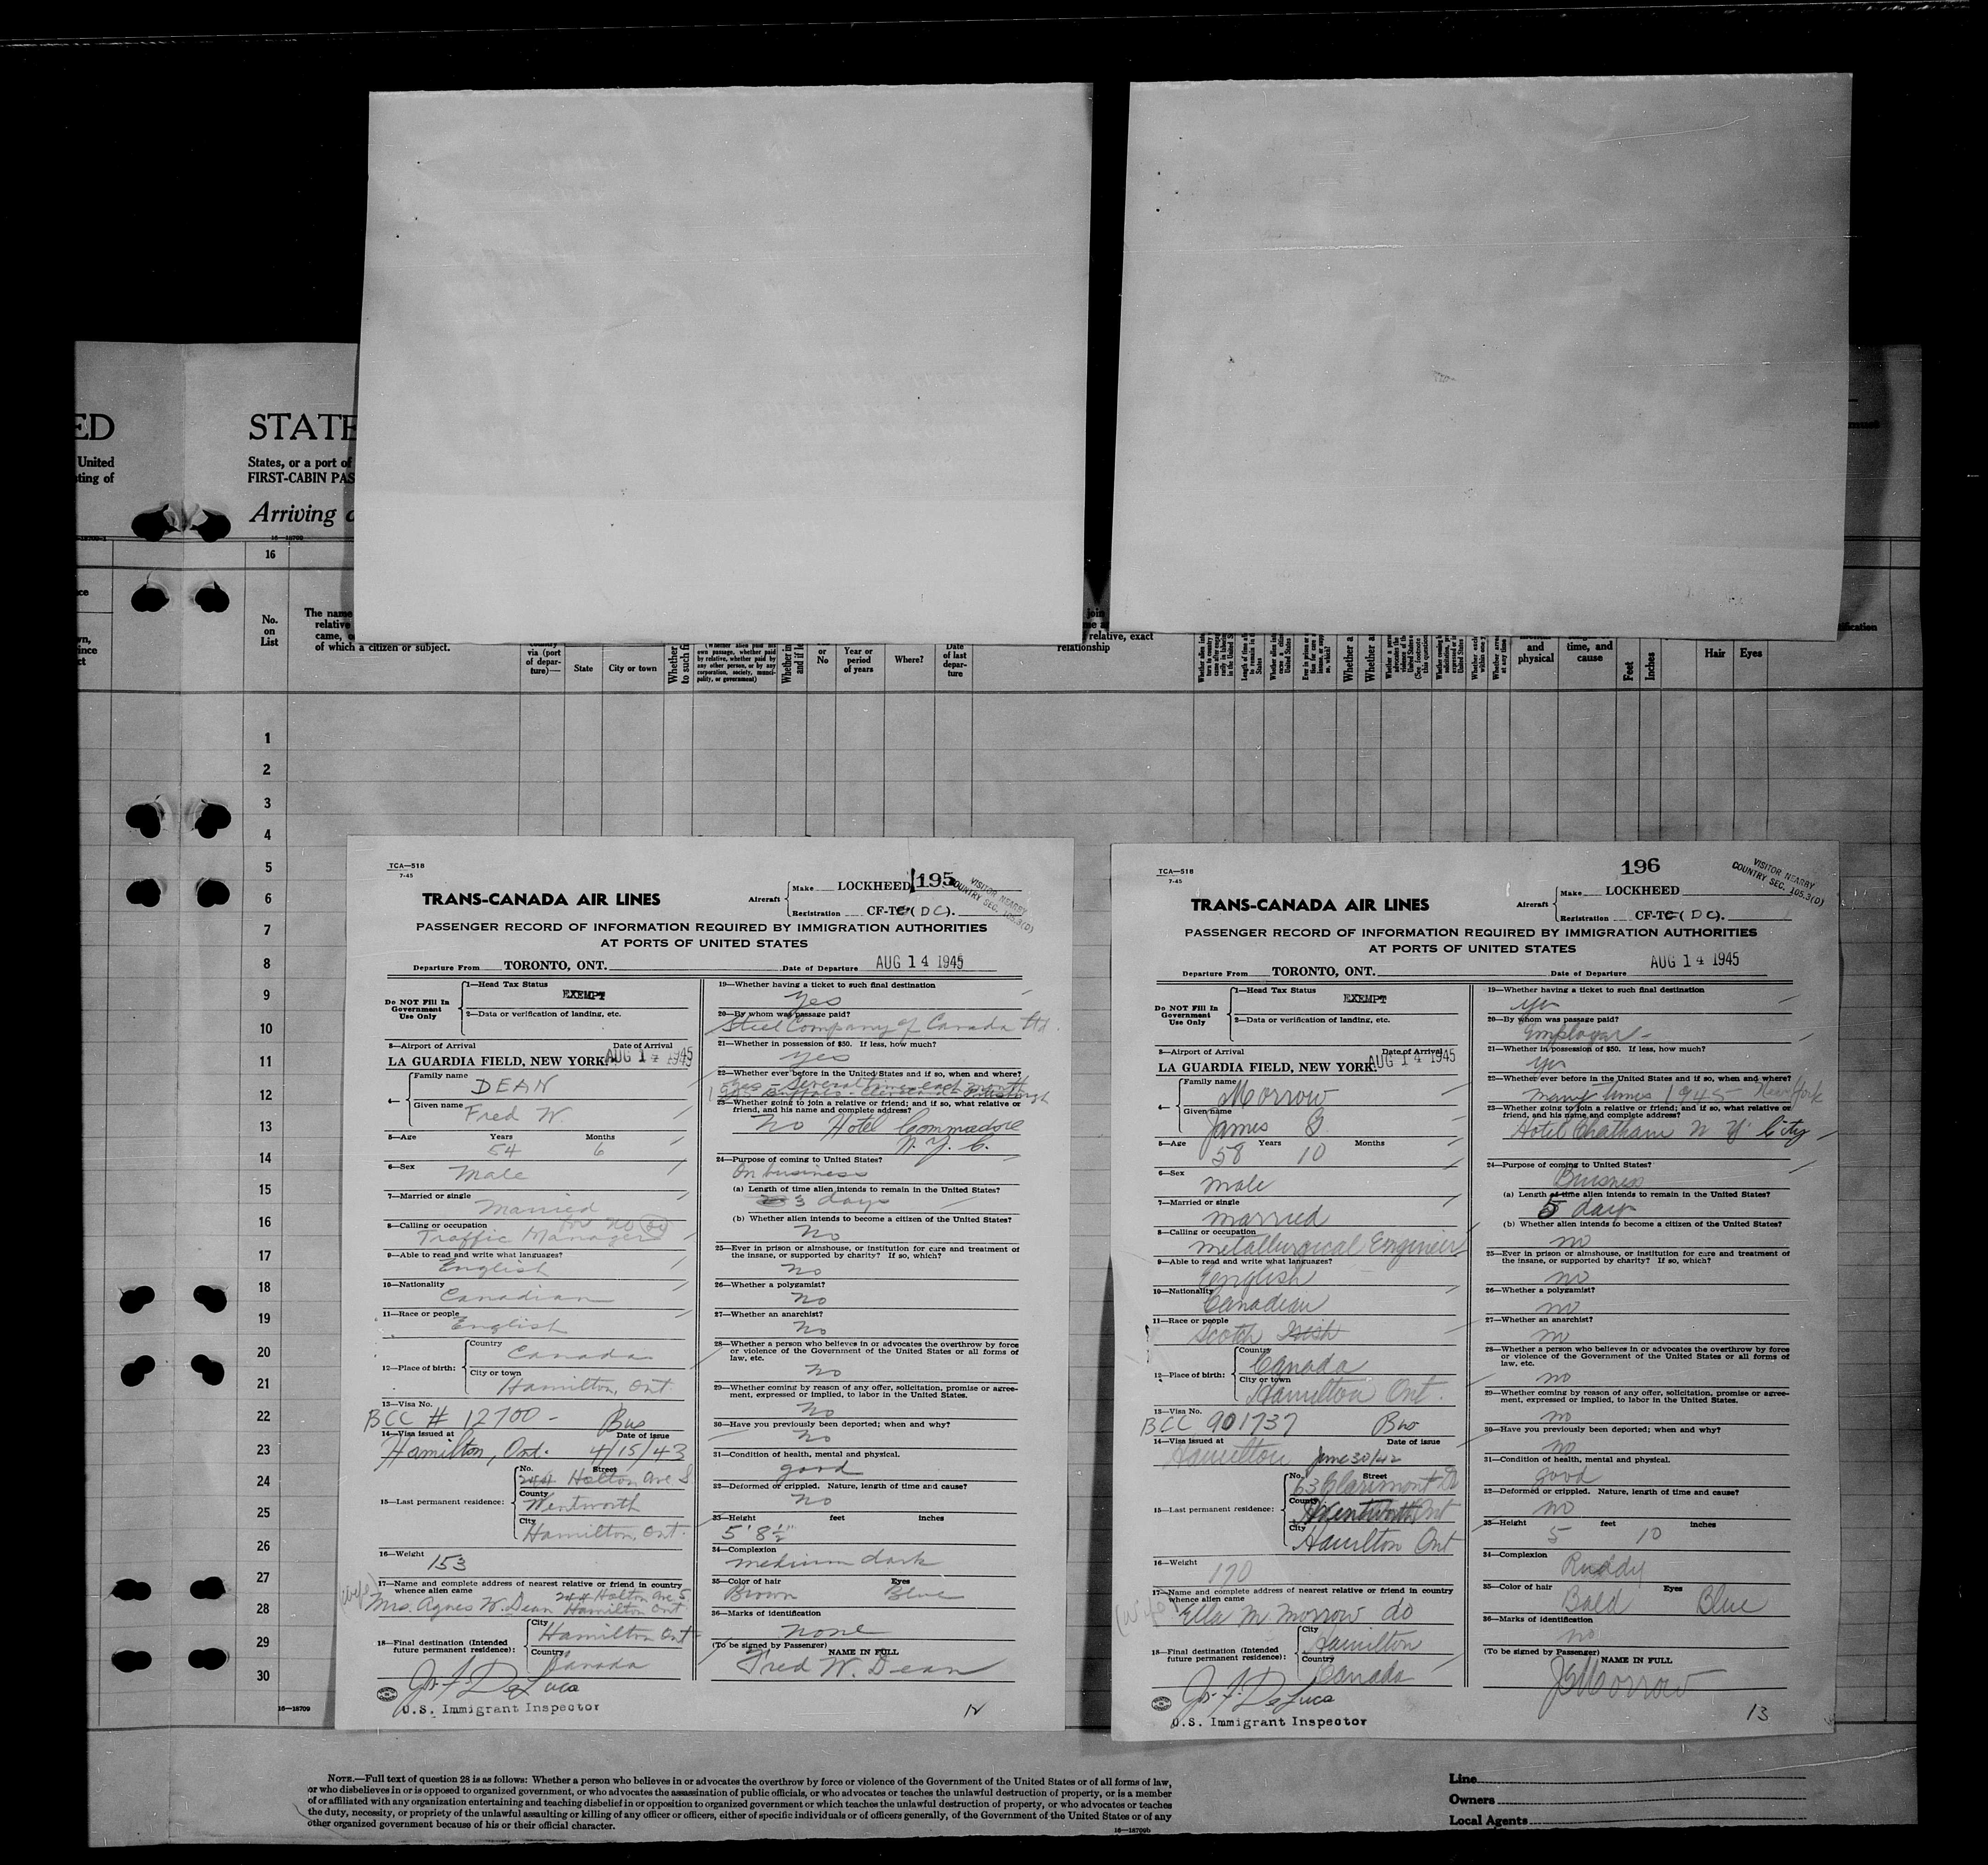 ED
United
ting of
STATE
States, or a port of
FIRST-CABIN PAS
Arriving
16—18709
16
No.
on
List
The name
relative
came, o
of which a citizen or subject.
via (port
of depar-
ture)—
State
City or town
Whether
to such fi
(Whether alien paid his
own passage, whether paid
by relative, whether paid by
any other person, or by any
corporation, society, munici-
pality, or government)
Whether in
and if le
or
No
Year or
period
of years
Where?
Date
of last
depar-
ture
join
relative, exact
relationship
Whether a
Whether a
and
physical
time, and
cause
Feet
Inches
Hair
Eyes
1
2
3
4
5
6
7
8
9
10
11
12
13
14
15
16
17
18
19
20
21
22
23
24
25
26
27
28
29
30
16—18709
TCA—518
7-45
TRANS-CANADA AIR LINES
195
VISITOR NEARBY
COUNTRY SEC. 105.3(D)
Aircraft
Make LOCKHEED
Registration CF-TC (DC).
PASSENGER RECORD OF INFORMATION REQUIRED BY IMMIGRATION AUTHORITIES
AT PORTS OF UNITED STATES
Departure From TORONTO, ONT. Date of Departure AUG 14 1945
Do NOT Fill In
Government
Use Only
1—Head Tax Status
EXEMPT
2—Data or verification of landing, etc.
3—Airport of Arrival Date of Arrival
LA GUARDIA FIELD, NEW YORK. AUG 14 1945
4— Family name
DEAN
Given name
Fred W.
5—Age Years Months
54 6
6—Sex
Male
7—Married or single
Married
8—Calling or occupation
Traffic Manager
9—Able to read and write what languages?
English
10—Nationality
Canadian
11—Race or people
English
12—Place of birth:
Country
Canada
City or town
Hamilton, Ont.
13—Visa No.
BCC # 12700 - Bus
14—Visa issued at Date of issue
Hamilton, Ont. 4/15/43
15—Last permanent residence:
No. Street
244 Holton Ave S
County
Wentworth
City
Hamilton, Ont.
16—Weight
153
17—Name and complete address of nearest relative or friend in country
whence alien came
(wife) Mrs. Agnes W. Dean 244 Holton Ave S.
Hamilton Ont
18—Final destination (Intended
future permanent residence):
City
Hamilton Ont
Country
Canada
Jos. F. DeLuca
U.S. Immigrant Inspector
19—Whether having a ticket to such final destination
Yes
20—By whom was passage paid?
Steel Company of Canada Ltd.
21—Whether in possession of $50. If less, how much?
Yes
22—Whether ever before in the United States and if so, when and where?
Yes - Several times each month
Buffalo - Cleveland - Pittsburgh
23—Whether going to join a relative or friend; and if so, what relative or
friend, and his name and complete address?
No Hotel Commodore
N.Y.C.
24—Purpose of coming to United States?
On business
(a) Length of time alien intends to remain in the United States?
3 days
(b) Whether alien intends to become a citizen of the United States?
No
25—Ever in prison or almshouse, or institution for care and treatment of
the insane, or supported by charity? If so, which?
No
26—Whether a polygamist?
No
27—Whether an anarchist?
No
28—Whether a person who believes in or advocates the overthrow by force
or violence of the Government of the United States or all forms of
law, etc.
No
29—Whether coming by reason of any offer, solicitation, promise or agree-
ment, expressed or implied, to labor in the United States.
No
30—Have you previously been deported; when and why?
No
31—Condition of health, mental and physical.
good
32—Deformed or crippled. Nature, length of time and cause?
No
33—Height feet inches
5' 8½"
34—Complexion
medium dark
35—Color of hair Eyes
Brown Blue
36—Marks of identification
none
(To be signed by Passenger) NAME IN FULL
Fred W. Dean
12
TCA—518
7-45
TRANS-CANADA AIR LINES
196
VISITOR NEARBY
COUNTRY SEC. 105.3(D)
Aircraft
Make LOCKHEED
Registration CF-TC (DC).
PASSENGER RECORD OF INFORMATION REQUIRED BY IMMIGRATION AUTHORITIES
AT PORTS OF UNITED STATES
Departure From TORONTO, ONT. Date of Departure AUG 14 1945
Do NOT Fill In
Government
Use Only
1—Head Tax Status
EXEMPT
2—Data or verification of landing, etc.
3—Airport of Arrival Date of Arrival
LA GUARDIA FIELD, NEW YORK. AUG 14 1945
4— Family name
Morrow
Given name
James
5—Age Years Months
58 10
6—Sex
male
7—Married or single
married
8—Calling or occupation
metallurgical Engineer
9—Able to read and write what languages?
English
10—Nationality
Canadian
11—Race or people
Scotch Irish
12—Place of birth:
Country
Canada
City or town
Hamilton Ont.
13—Visa No.
BCC 901737 Bus
14—Visa issued at Date of issue
Hamilton June 30/42
15—Last permanent residence:
No. Street
63 Claremont Dr
County
Wentworth Ont
City
Hamilton Ont
16—Weight
170
17—Name and complete address of nearest relative or friend in country
whence alien came
(wife) Ella M Morrow do
18—Final destination (Intended
future permanent residence):
City
Hamilton
Country
Canada
Jos. F. DeLuca
U.S. Immigrant Inspector
19—Whether having a ticket to such final destination
yes
20—By whom was passage paid?
Employer -
21—Whether in possession of $50. If less, how much?
yes
22—Whether ever before in the United States and if so, when and where?
many times 1945 - New York
23—Whether going to join a relative or friend; and if so, what relative or
friend, and his name and complete address?
Hotel Chatham N Y City
24—Purpose of coming to United States?
Business
(a) Length of time alien intends to remain in the United States?
5 days
(b) Whether alien intends to become a citizen of the United States?
no
25—Ever in prison or almshouse, or institution for care and treatment of
the insane, or supported by charity? If so, which?
no
26—Whether a polygamist?
no
27—Whether an anarchist?
no
28—Whether a person who believes in or advocates the overthrow by force
or violence of the Government of the United States or all forms of
law, etc.
no
29—Whether coming by reason of any offer, solicitation, promise or agree-
ment, expressed or implied, to labor in the United States.
no
30—Have you previously been deported; when and why?
no
31—Condition of health, mental and physical.
good
32—Deformed or crippled. Nature, length of time and cause?
no
33—Height feet inches
5 10
34—Complexion
Ruddy
35—Color of hair Eyes
Bald Blue
36—Marks of identification
no
(To be signed by Passenger) NAME IN FULL
JGMorrow
13
NOTE.—Full text of question 28 is as follows: Whether a person who believes in or advocates the overthrow by force or violence of the Government of the United States or of all forms of law,
or who disbelieves in or is opposed to organized government, or who advocates the assassination of public officials, or who advocates or teaches the unlawful destruction of property, or is a member
of or affiliated with any organization entertaining and teaching disbelief in or opposition to organized government or which teaches the unlawful destruction of property, or who advocates or teaches
the duty, necessity, or propriety of the unlawful assaulting or killing of any officer or officers, either of specific individuals or of officers generally, of the Government of the United States or of any
other organized government because of his or their official character.
16—18709b
Line
Owners
Local Agents